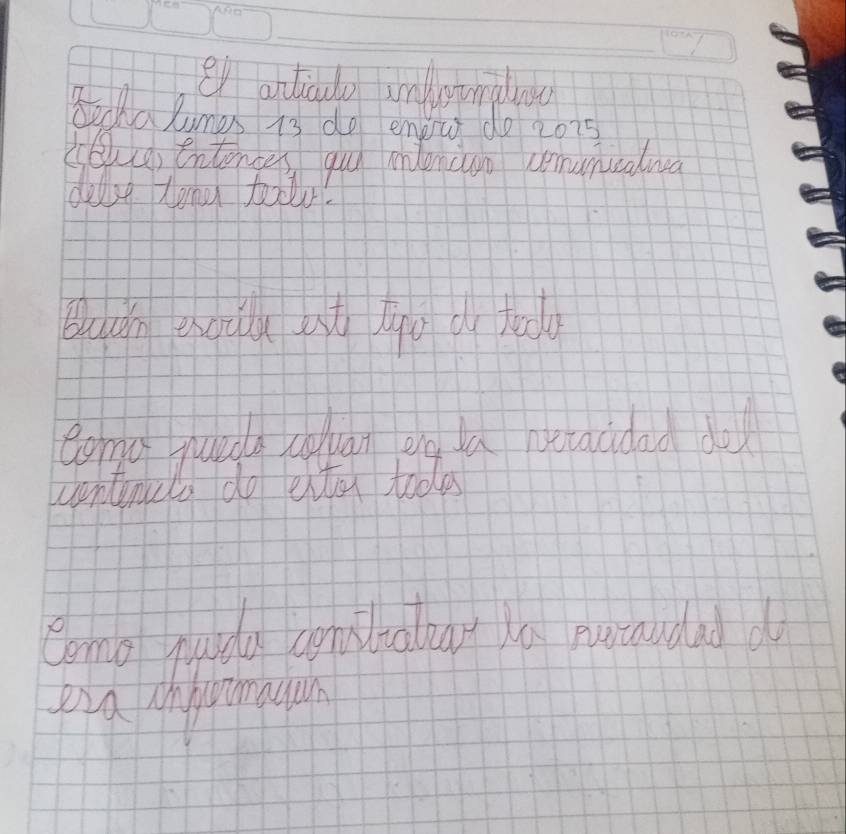 MES AÑO
NOTA
El articulo informativo
Fecha lunes 13 de enero de 2025
¿Que, Entonces, que intencion comunicativa
debe tener texto?
Quién escribe este tipo de texto
Como puedo confiar en la veracidad del
contenido de estos textos
Como puedo constratrar la veracidad de
esa informacion